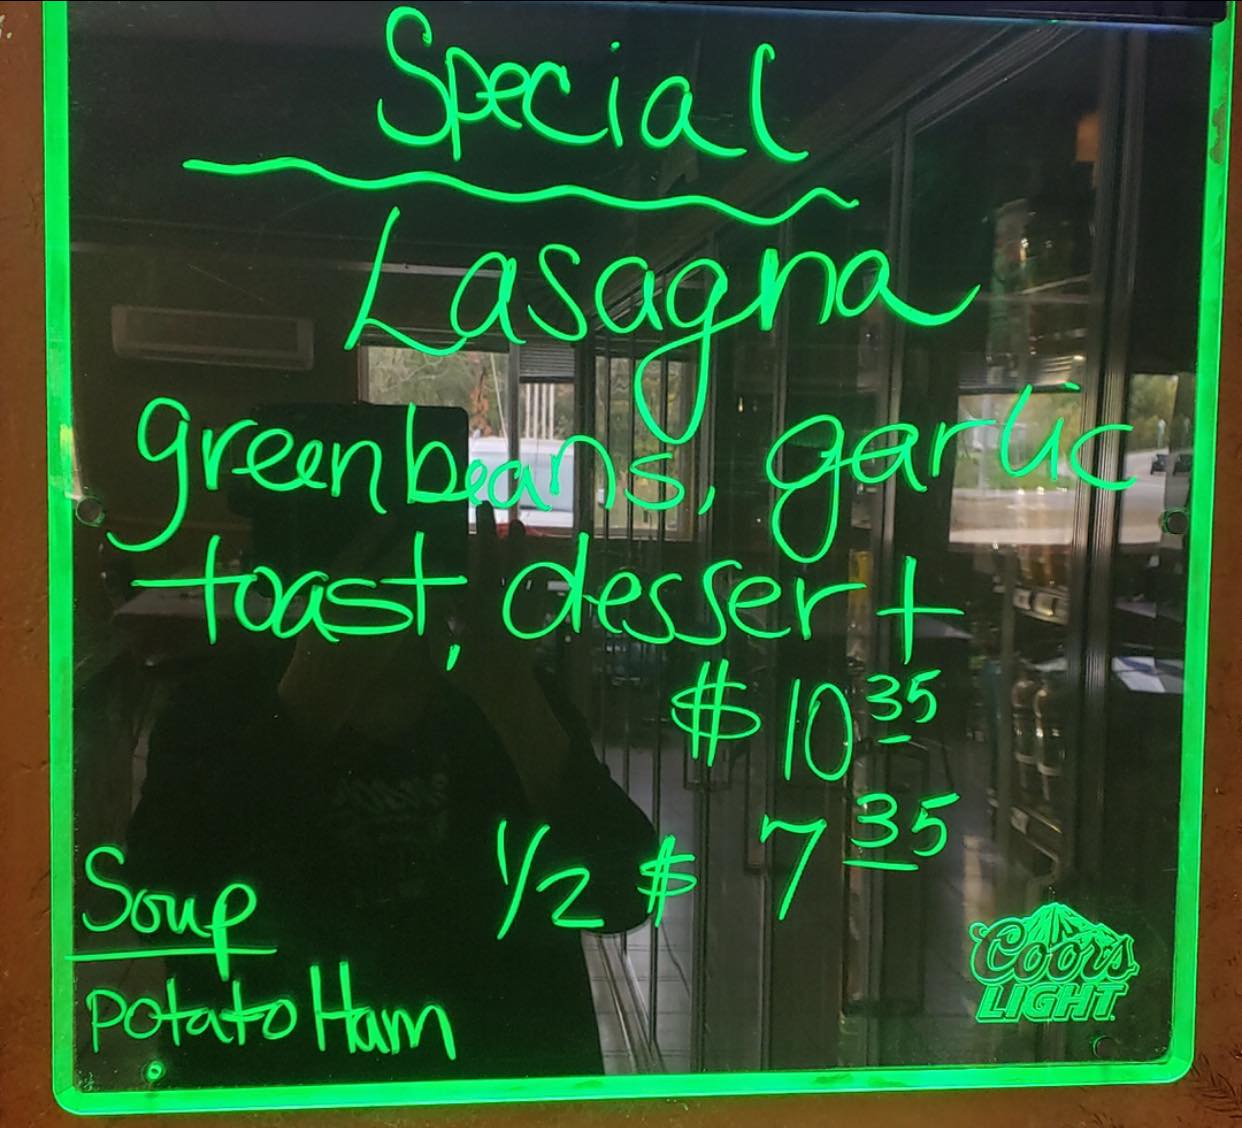 Special
Lasagna
greenbeans, garlic
toast, dessert
$ 10 35
1/2 $ 7 35
Soup
potato Ham
Coors
LIGHT